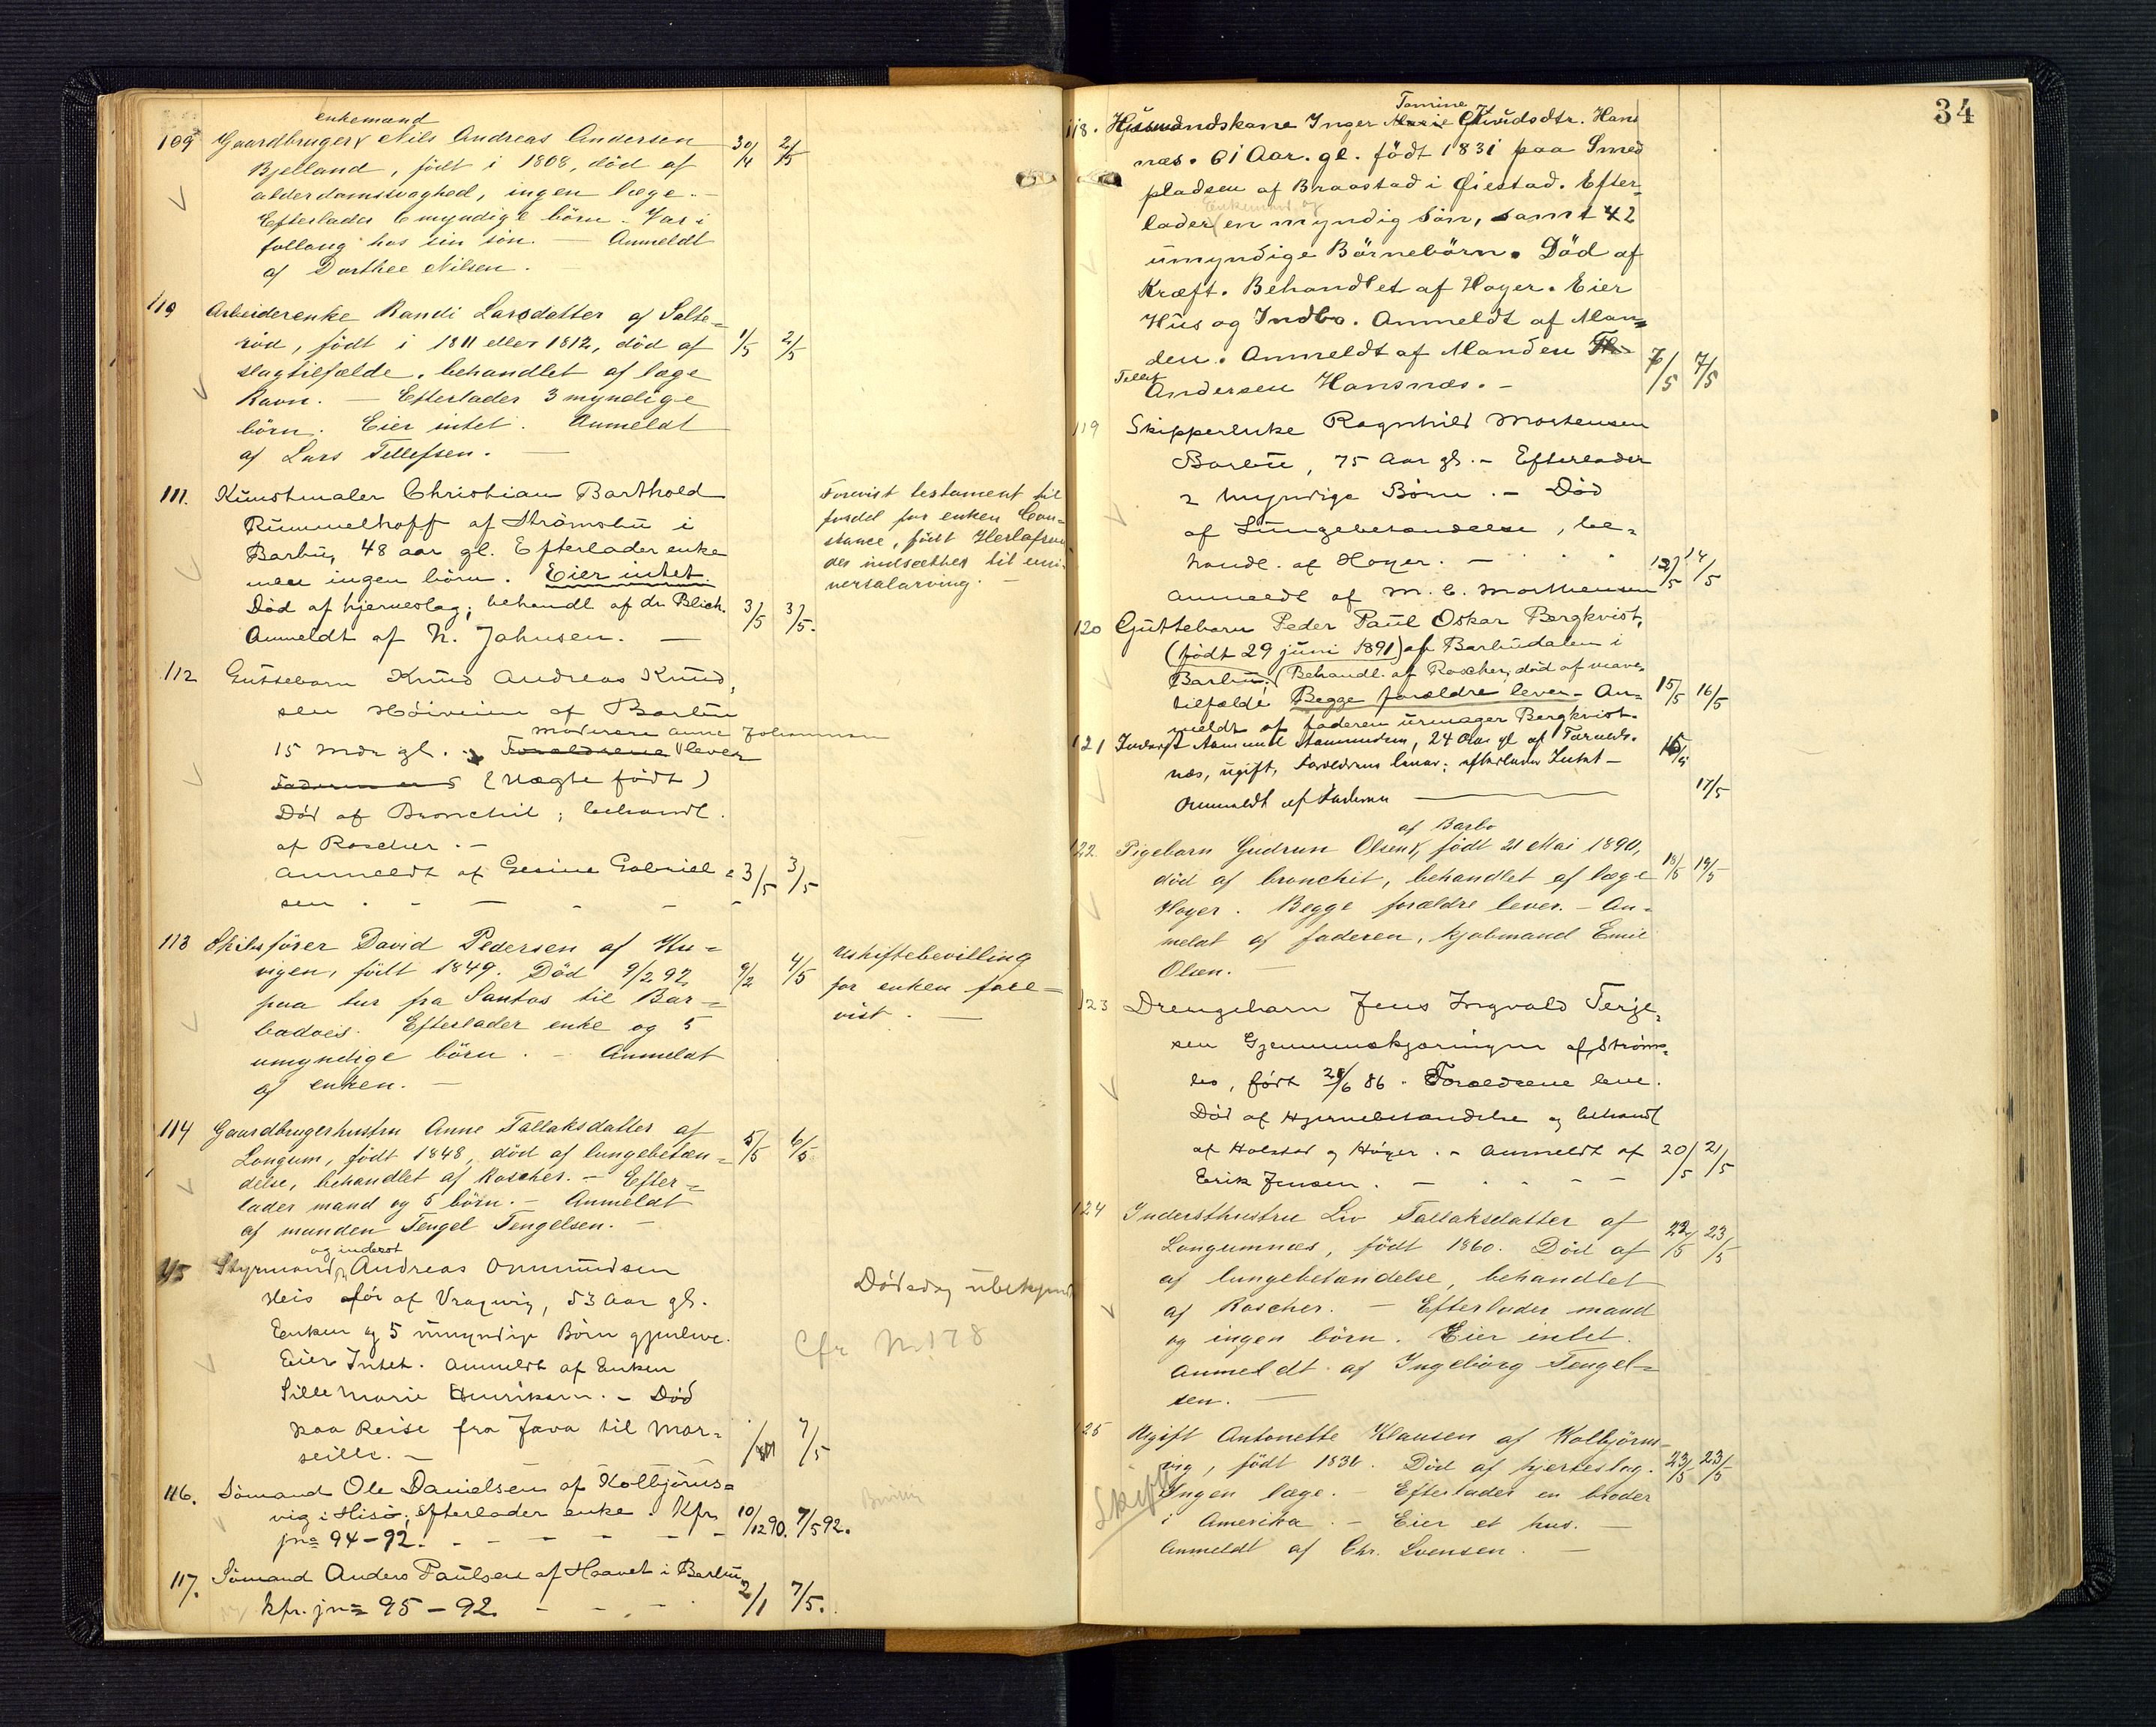 enkemand
109 Gaardbruger Nils Andreas Andersen 30/4 2/5
Bjelland, født i 1808, død af
alderdomssvaghed, ingen læge. -
Efterlader 6 myndige börn. Var i
follaug hos sin sön. — Anmeldt
af Dorthee Nilsen. -
110 Arbeiderenke Randi Larsdatter af Salte=
röd, födt i 1811 eller 1812, död af 1/5 2/5
slagtilfælde, behandlet af læge
Ravn. — Efterlader 3 myndige
börn. Eier intet. Anmeldt
af Lars Tellefsen. —
111. Kunstmaler Christian Barthold
Rummelhoff af Strömsbu i
Barbu, 48 aar gl. Efterlader enke
men ingen börn. Eier intet.
Död af hjerneslag; behandl af dr Blich. 3/5 3/5.
Anmeldt af N. Jahnsen. —
Forevist testament til
fordel for enken Con=
stance, født Herlofsen
der indsættes til uni=
versalarving. —
112 Guttebarn Knud Andreas Knud,
sen Höiveien af Barbu
moderen Anne Johannsen
15 mdr gl. Forældrene lever
(Uægte födt)
Död af Bronchit; behandl.
af Roscher. -
Anmeldt af Gesine Gabriel= 3/5 3/5
sen. - - - - -
113 Skibsförer David Pedersen af Hu=
vigen, födt 1849. Död 9/2 92 9/2 4/5
paa tur fra Santos til Bar=
badoes. Efterlader enke og 5
umyndige börn. - Anmeldt
af enken. —
Uskiftebevilling
for enken fore=
vist. —
114 Gaardbrugerhustru Anne Tallaksdatter af
Longum, födt 1848, död af lungebetæn= 5/5 6/5
delse, behandlet af Roscher. - Efter=
lader mand og 5 börn. - Anmeldt
af manden Tengel Tengelsen. -
og inderst
115 Styrmand Andreas Ommundsen
Heis af Vragevig, 53 Aar gl.
Enken og 5 umyndige Börn gjenleve.
Eier Intet. Anmeldt af Enken
Sille Marie Henriksen. - Död
paa Reise fra Java til Mar=
seille. - 7/5
Dödsdag ubekjendt
Cfr N. 178
116. Sömand Ole Danielsen af Kolbjörns=
vig i Hisö; efterlader enke. Kfr. 10/12 90. 7/5 92.
jn= 94-92. - - - - -
117. Sömand Anders Paulsen af Haavet i Barbu,
kfr. jn= 95-92. - - - 2/1 7/5.
34
Tomine
118. Husmandskone Inger Marie Knudsdtr. Hans
næs. 61 Aar. gl. födt 1831 paa Smed
pladsen af Braastad i Öiestad. Efter=
Enkemand og
lader en myndig Sön, samt 2
umyndige Börnebörn. Död af
Kræft. Behandlet af Hoyer. Eier
Hus og Indbo. Anmeldt af Man=
den. Anmeldt af Manden 7/5 7/5
Tellef
Andersen Hansnæs. -
119 Skipperenke Ragnhild Mortensen
Barbu, 75 Aar gl. - Efterlader
2 myndige Börn. - Död
af Lungebetændelse, be=
handl. af Hoyer. - 12/5 14/5
Anmeldt af M. C. Morthensen
120 Guttebarn Peder Paul Oskar Bergkvist,
(födt 29 juni 1891) af Barbudalen i
Barbu; (Behandl. af Roscher, död af mave=
tilfælde. Begge forældre lever. - An= 15/5 16/5
meldt af faderen urmager Bergkvist.
121 Inderst Aanund Aanundsen, 24 Aar gl af
næs, ugift, Forældrene lever; efterlader Intet -
Anmeldt af Faderen — 17/5
af Barbo
122. Pigebarn Gudrun Olsen, födt 21 Mai 1890,
död af bronchit, behandlet af læge 18/5 19/5
Hoyer. Begge forældre lever. - An=
meldt af faderen, kjøbmand Emil
Olsen. —
123 Drengebarn Jens Ingvald Terje,
sen Gjennemskjæringen af Ströms=
bo, födt 28/6 86. Forældrene leve.
Död af Hjernebetændelse og behandl
af Holsted og Höyer. - Anmeldt af 20/5 21/5
Erik Jensen. - - - - -
124 Indersthustru Liv Tallaksdatter af
Longumnæs, födt 1860. Död af 22/5 23/5
af lungebetændelse, behandlet
af Roscher. - Efterlader mand
og ingen börn. Eier intet.
Anmeldt af Ingeborg Tengel=
sen. —
125 Ugift Antonette Klausen af Kolbjörns=
vig, födt 1836. Död af hjerteslag. 23/5 23/5
Ingen læge. - Efterlader en broder
i Amerika. - Eier et hus. —
Anmeldt af Chr. Svensen. —
Skifte